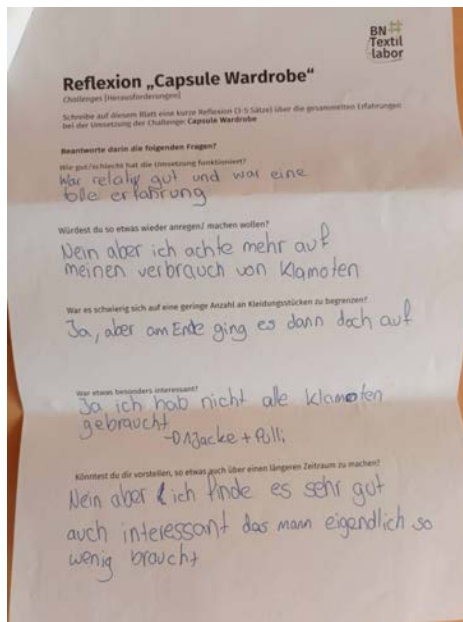 BN
Textil
labor
Reflexion „Capsule Wardrobe“
Challenges [Herausforderungen]
Schreibe auf diesem Blatt eine kurze Reflexion (3-5 Sätze) über die gesammelten Erfahrungen
bei der Umsetzung der Challenge: Capsule Wardrobe
Beantworte darin die folgenden Fragen?
Wie gut/schlecht hat die Umsetzung funktioniert?
War relativ gut und war eine
tolle erfahrung
Würdest du so etwas wieder anregen/ machen wollen?
Nein aber ich achte mehr auf
meinen verbrauch von Klamoten
War es schwierig sich auf eine geringe Anzahl an Kleidungsstücken zu begrenzen?
Ja, aber am Ende ging es dann doch auf
War etwas besonders interessant?
Ja ich hab nicht alle klamoten
gebraucht
1 Jacke + Pulli
Könntest du dir vorstellen, so etwas auch über einen längeren Zeitraum zu machen?
Nein aber ich finde es sehr gut
auch interessant das mann eigendlich so
wenig braucht